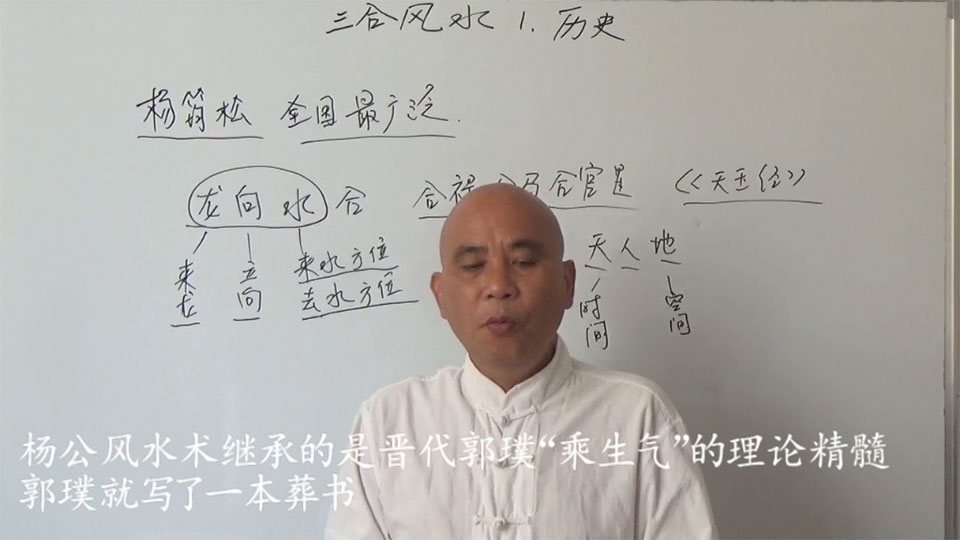 三合风水 1. 历史
杨筠松 全国最广泛.
龙向水合 合禄合马合官星 《天玉经》
来龙 立向 来水方位
去水方位
天人地
时间 空间
杨公风水术继承的是晋代郭璞“乘生气”的理论精髓
郭璞就写了一本葬书